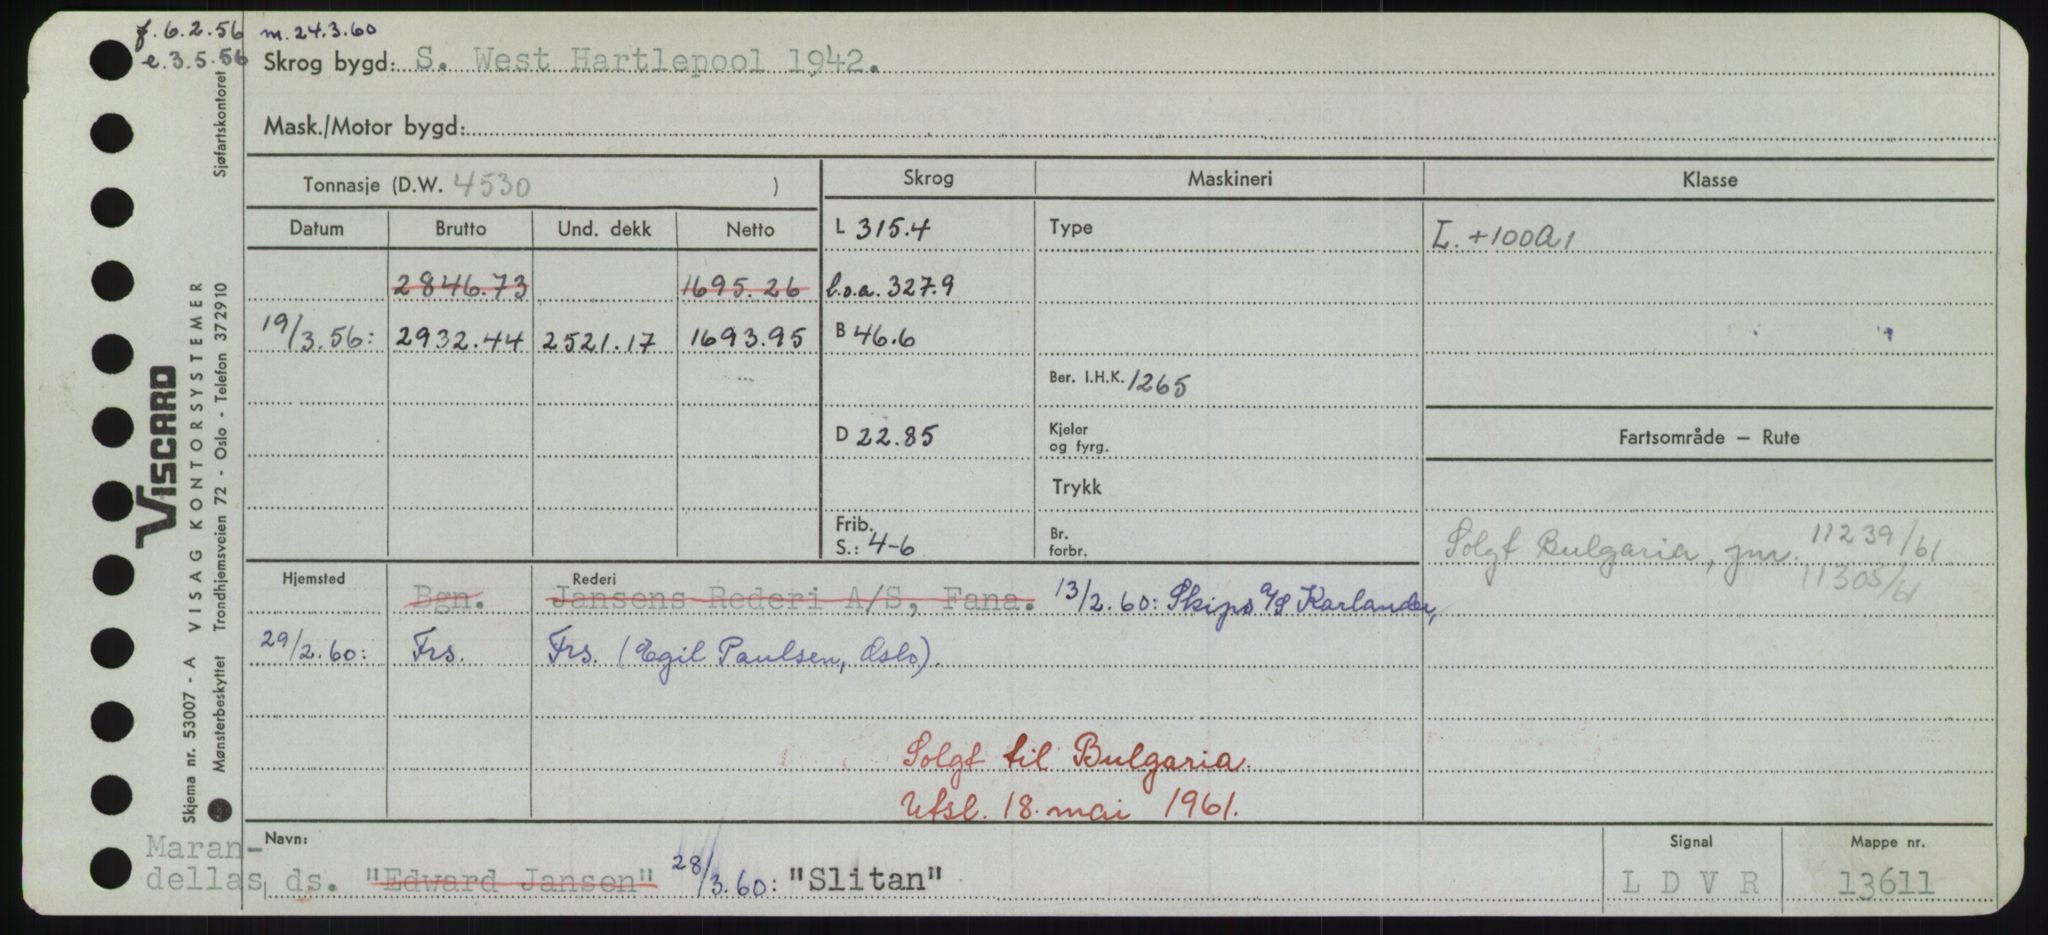 f. 6.2.56 m. 24.3.60
e. 3.5.56
Skrog bygd: S. West Hartlepool 1942.
Mask./Motor bygd:
Tonnasje (D.W. 4530 )
Skrog Maskineri Klasse
Datum Brutto Und. dekk Netto
L 315.4 Type L. +100A1
2846.73 1695.26 l.o.a. 327.9
19/3.56: 2932.44 2521.17 1693.95 B 46.6
Ber. I.H.K. 1265
D 22.85 Kjeler og fyrg.
Fartsområde — Rute
Trykk
Frib. S.: 4-6 Br. forbr.
Solgt Bulgaria, jnr. 11239/61
11305/61
Hjemsted Rederi
Bgn. Jansens Rederi A/S, Fana. 13/2.60: Skips a/s Karlander,
29/2.60: Frs. Frs. (Egil Paulsen, Oslo).
Solgt til Bulgaria.
Utsl. 18. mai 1961.
Navn: Signal Mappe nr.
Maran-
dellas ds. "Edward Jansen" 28/3.60: "Slitan" LDVR 13611
VISCARD
VISAG KONTORSYSTEMER
Trondhjemsveien 72 - Oslo - Telefon 372910
Skjema nr. 53007 - A
Mønsterbeskyttet
Sjøfartskontoret